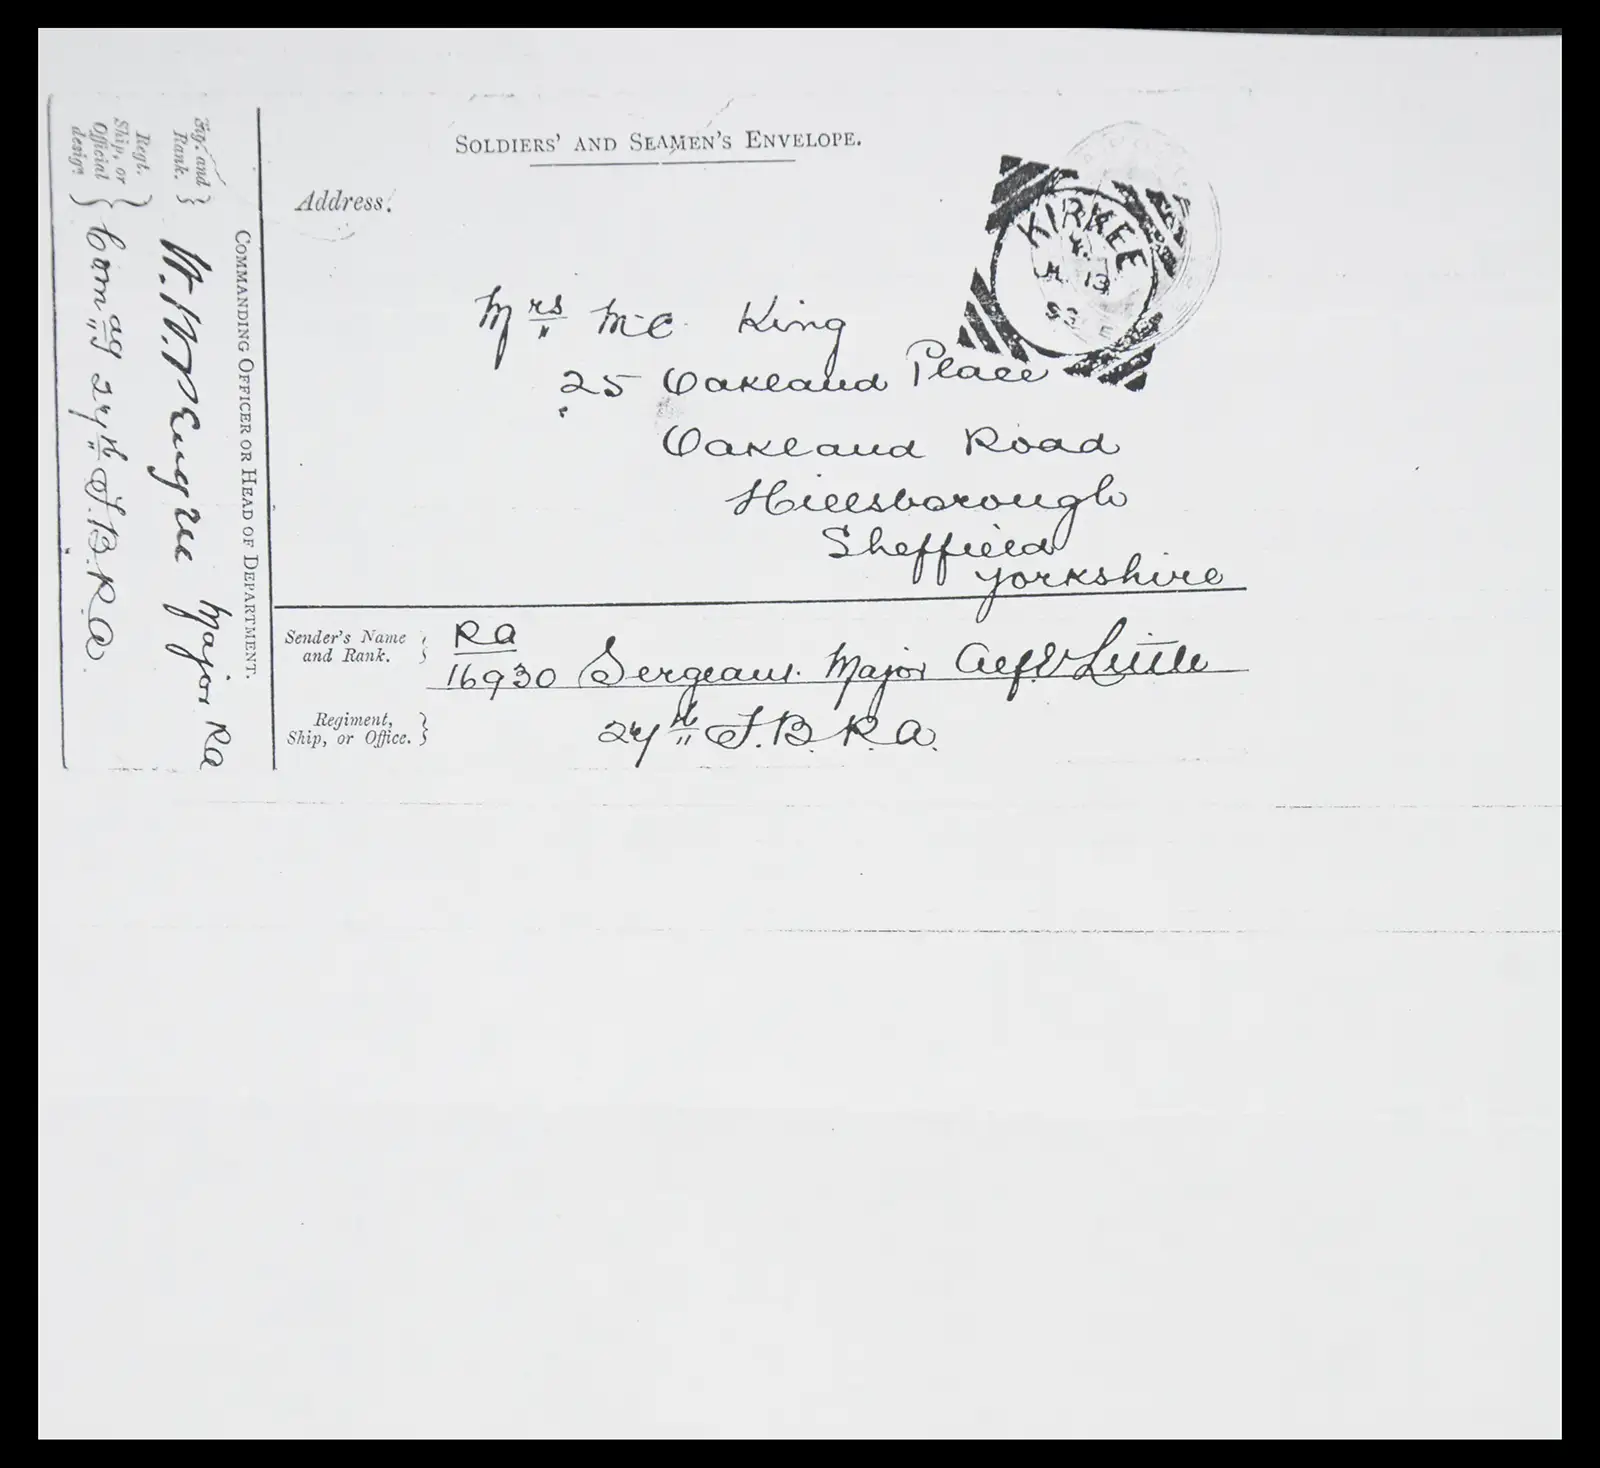 SOLDIERS' AND SEAMEN'S ENVELOPE.
Address.
KIRKEE
13
Mrs Mc King
25 Oakland Place
Oakland Road
Hillsborough
Sheffield
Yorkshire
Sender's Name and Rank.
RA
16930 Sergeant. Major Alf Little
Regiment, Ship, or Office.
27th F.B. R.A.
COMMANDING OFFICER OR HEAD OF DEPARTMENT.
Sig. and Rank.
Major RA
Regt. Ship, or Official design.
Comdg 27th F.B.R.A.